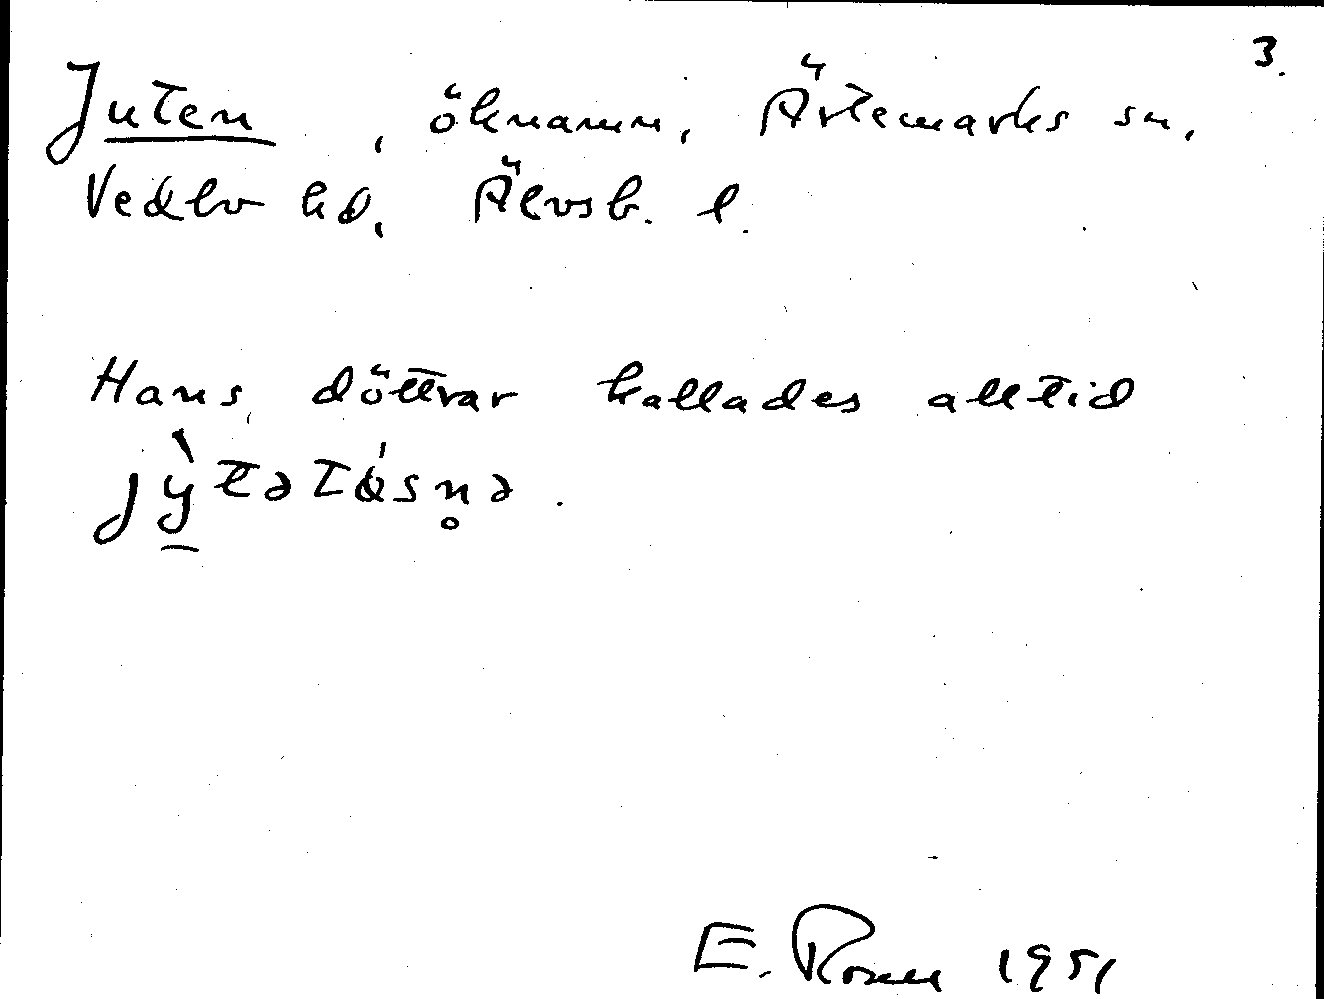 3.
Juten, öknamn, Ärtemarks sn,
Vedbo hd, Älvsb. l.
Hans döttrar kallades alltid
E. Rosell 1951